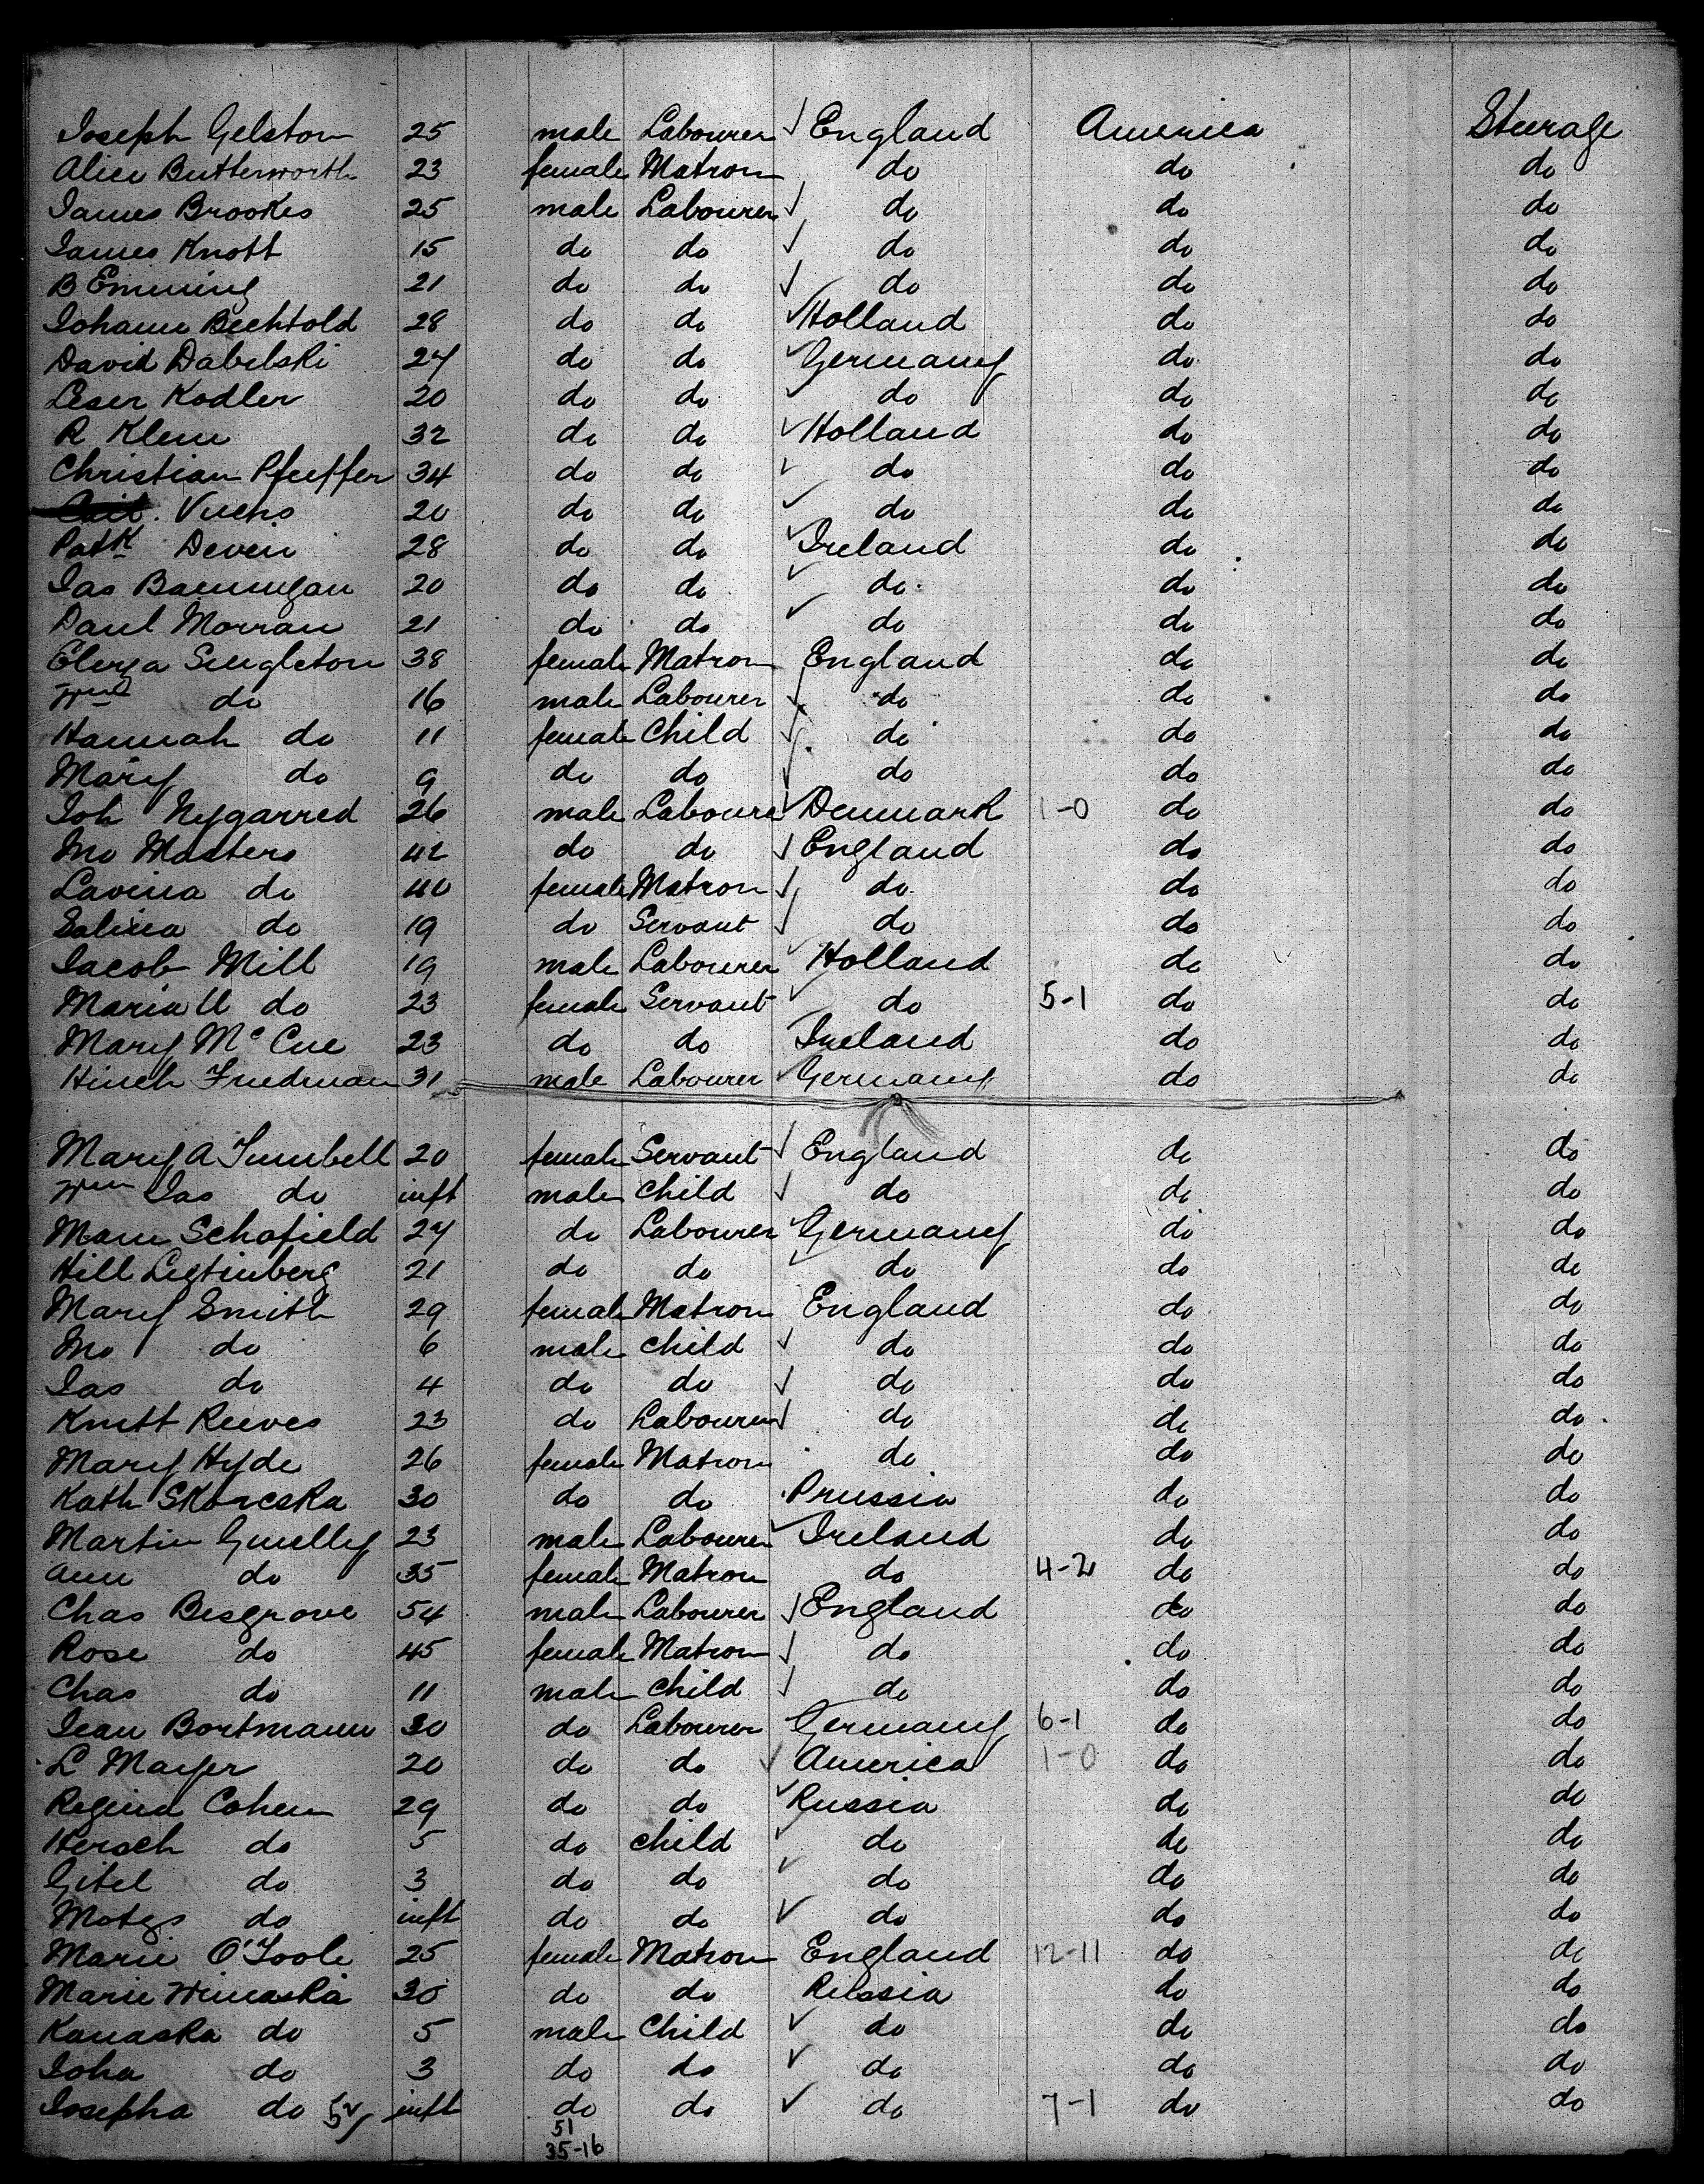 Joseph Gelston 25 male Labourer England America Steerage
Alice Butterworth 23 female Matron do do do
James Brookes 25 male Labourer do do do
James Knott 15 do do do do do
B Emming 21 do do do do do
Johann Bechtold 28 do do Holland do do
David Dabelski 24 do do Germany do do
Leser Kodler 20 do do do do do
R Klein 32 do do Holland do do
Christian Pfeiffer 34 do do do do do
Vuchs 20 do do do do do
Patk Deven 28 do do Ireland do do
Jas 20 do do do do do
Paul Morran 21 do do do do do
Eliza Singleton 38 female Matron England do do
Wm do 16 male Labourer do do do
Hannah do 11 female Child do do do
Mary do 9 do do do do do
Joh Nygarred 26 male Laboure Denmark 1-0 do do
Jno Masters 42 do do England do do
Lavina do 40 female Matron do do do
Salina do 19 do Servant do do do
Jacob Mill 19 male Labourer Holland do do
Maria U do 23 female Servant do 5-1 do do
Mary McCue 23 do do Ireland do do
Hirsch Friedman 31 male Labourer Germany do do
Mary A Turnbell 20 female Servant England do do
Wm Jas do inft male child do do do
Mann Schofield 24 do Labourer Germany do do
Hill 21 do do do do do
Mary Smith 29 female Matron England do do
Jno do 6 male child do do do
Jas do 4 do do do do do
Knutt Reeves 23 do Labourer do do do
Mary Hyde 26 female Matron do do do
Kath Skorcska 30 do do Prussia do do
Martin Gnelly 23 male Labourer Ireland do do
Ann do 35 female Matron do 4-2 do do
Chas Besgrove 54 male Labourer England do do
Rose do 45 female Matron do do do
Chas do 11 male child do do do
Jean Bortmann 30 do Labourer Germany 6-1 do do
L Mayer 20 do do America 1-0 do do
Regina Cohen 29 do do Russia do do
Hersch do 5 do child do do do
Gitel do 3 do do do do do
Motys do inft do do do do do
Marie O'Toole 25 female Matron England 12-11 do do
Marie Wincaska 30 do do Russia do do
Kanaska do 5 male Child do do do
Joha do 3 do do do do do
Josepha do 52 inft do do do 7-1 do do
51
35-16